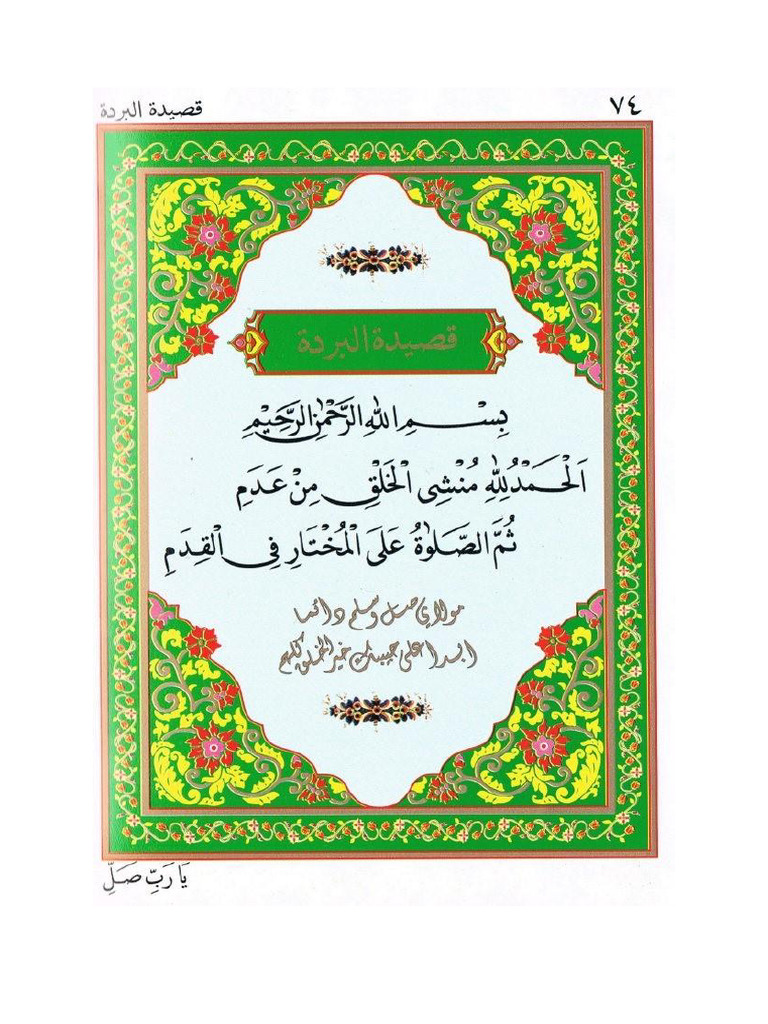 ٧٤
قصيدة البردة
قصيدة البردة
بِسْمِ اللهِ الرَّحْمٰنِ الرَّحِيْمِ
اَلْحَمْدُ لِلّٰهِ مُنْشِی الْخَلْقِ مِنْ عَدَمِ
ثُمَّ الصَّلٰوةُ عَلَى الْمُخْتَارِ فِی الْقِدَمِ
مولاي صل وسلم دائما
ابدا على حبيبك خير الخلق كلهم
يَا رَبِّ صَلِّ